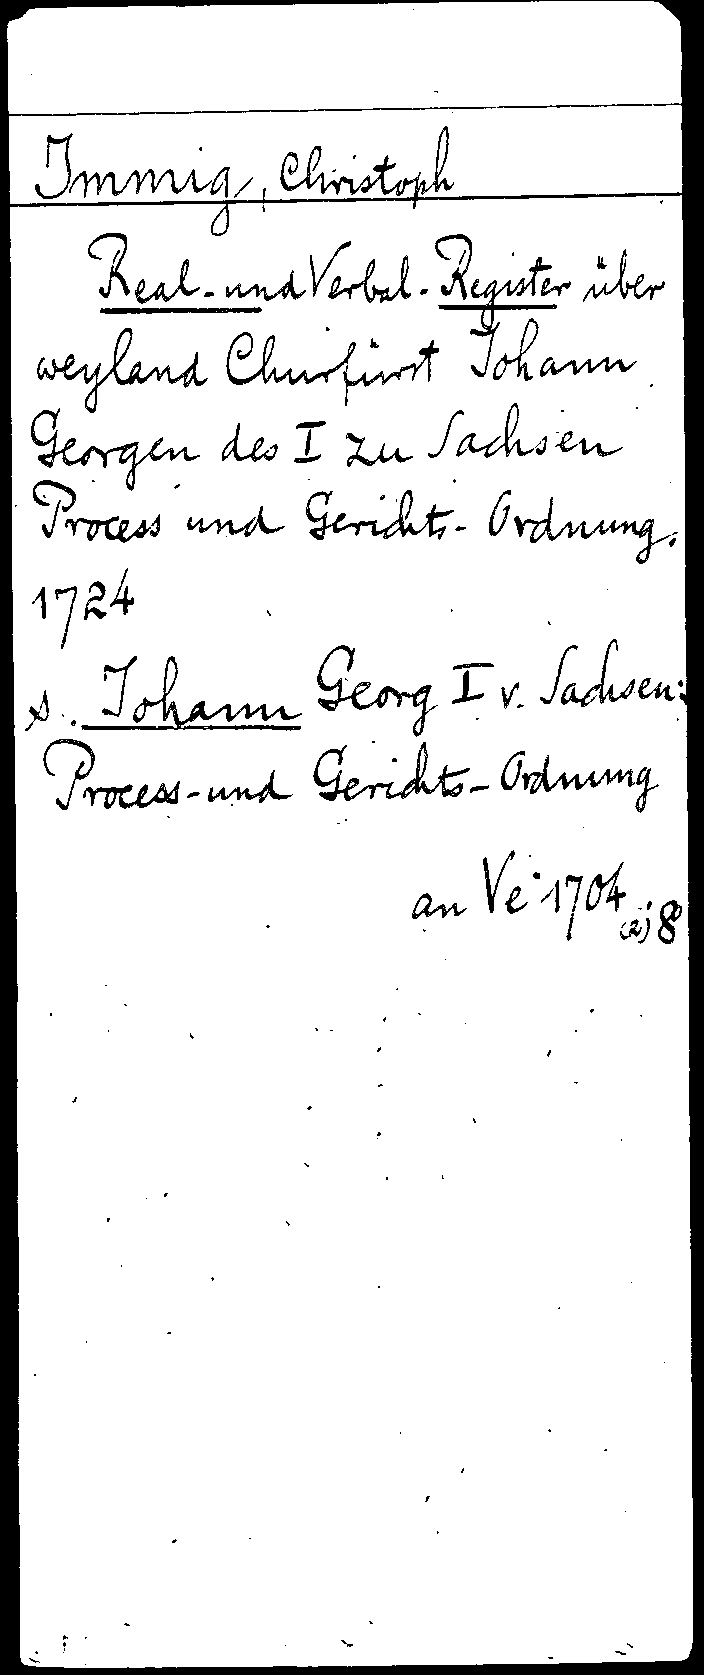 Immig, Christoph
Real- und Verbal-Register über
weyland Churfürst Johann
Georgen des I zu Sachsen
Process und Gerichts-Ordnung.
1724
s. Johann Georg I v. Sachsen:
Process- und Gerichts-Ordnung
an Ve 1704
(2) 8°